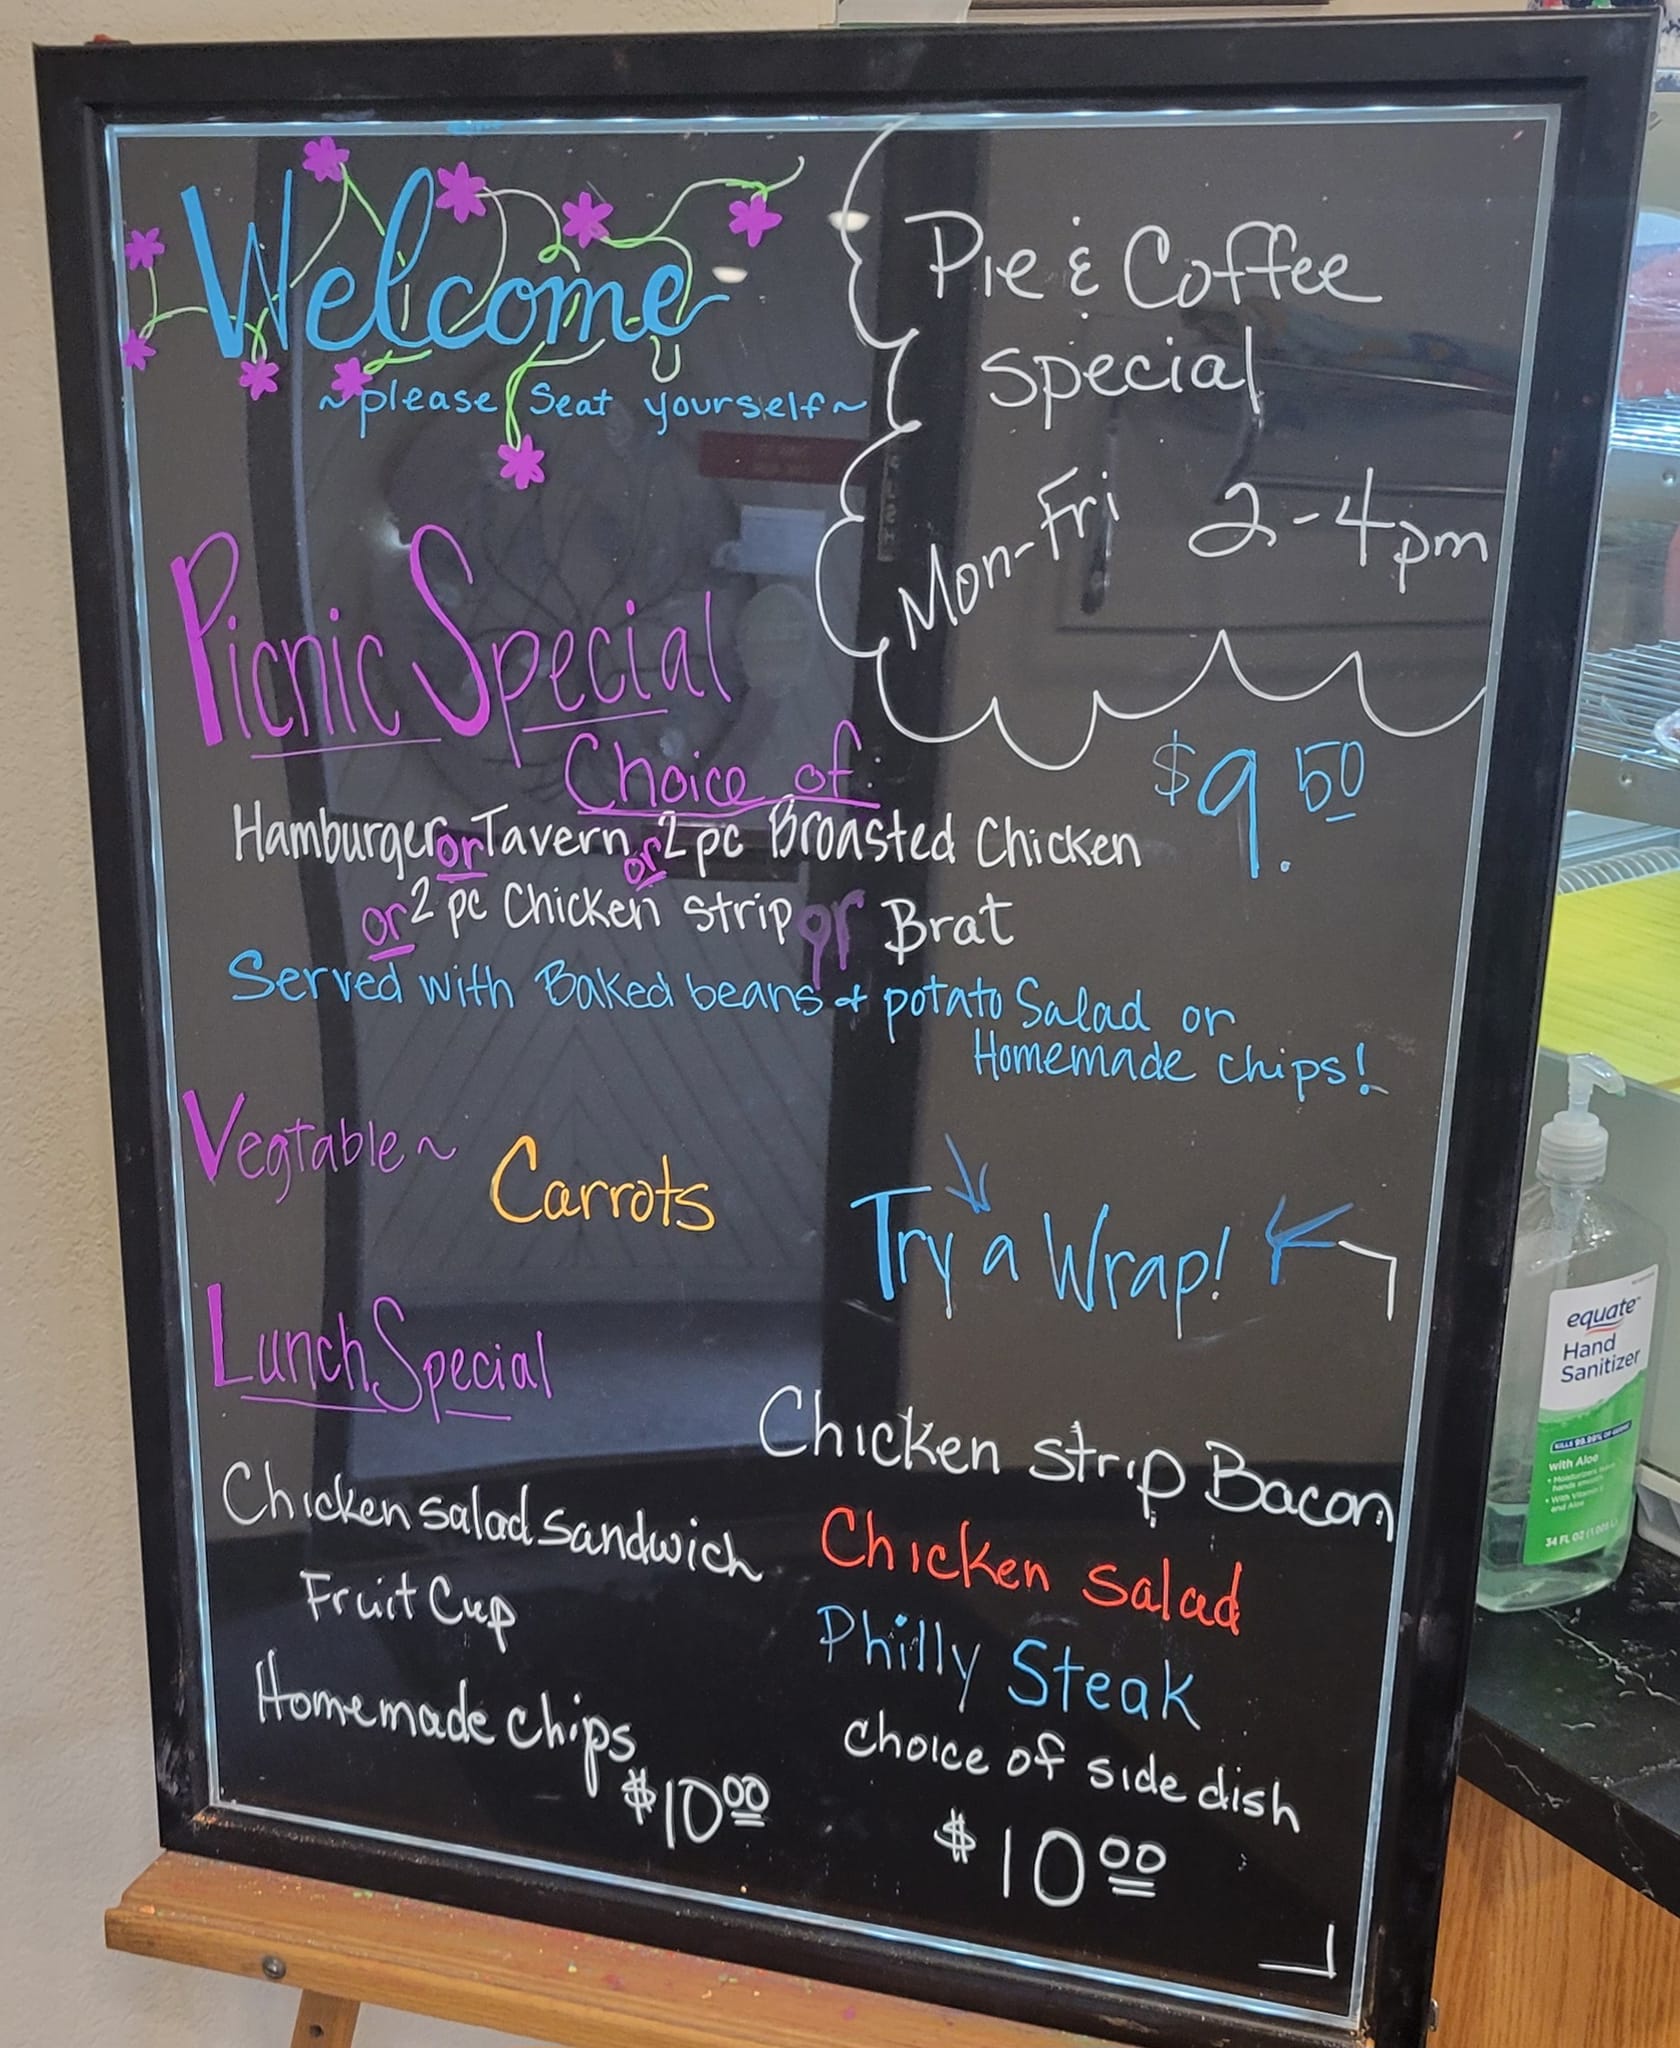 Welcome
~please seat yourself~
Pie & Coffee
Special
Mon-Fri 2-4pm
Picnic Special
Choice of:
$9.50
Hamburger or Tavern or 2 pc Broasted Chicken
or 2 pc Chicken Strip or Brat
Served with Baked beans + potato Salad or
Homemade chips!
Vegtable~ Carrots
Lunch Special
Chicken salad sandwich
Fruit Cup
Homemade chips
$10.00
Try a Wrap!
Chicken Strip Bacon
Chicken salad
Philly Steak
choice of side dish
$10.00
equate
Hand
Sanitizer
KILLS 99.99% OF GERMS
with Aloe
34 FL OZ